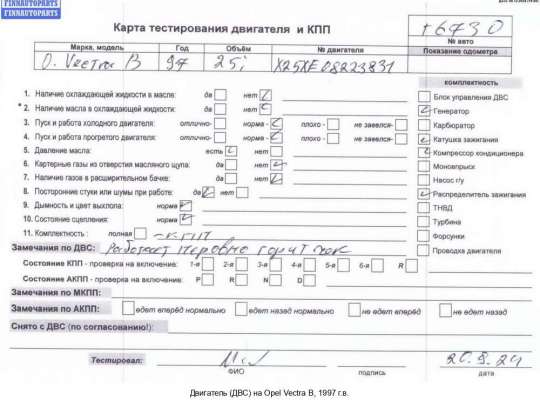 FINNAUTOPARTS
FINNAUTOPARTS
Карта тестирования двигателя и КПП
т6730
№ авто
Марка, модель Год Объём № двигателя Показание одометра
O. Vectra B 97 2,5i X25XE08223831
комплектность
1. Наличие охлаждающей жидкости в масле: да нет
2. Наличие масла в охлаждающей жидкости: да нет
3. Пуск и работа холодного двигателя: отлично- норма - плохо - не завелся-
4. Пуск и работа прогретого двигателя: отлично- норма - плохо - не завелся-
5. Давление масла: есть нет
6. Картерные газы из отверстия масляного щупа: да нет
7. Наличие газов в расширительном бачке: да нет
8. Посторонние стуки или шумы при работе: да нет
9. Дымность и цвет выхлопа: норма
10. Состояние сцепления: норма
11. Комплектность : полная -КПП
Блок управления ДВС
Генератор
Карбюратор
Катушка зажигания
Компрессор кондиционера
Моновпрыск
Насос г/у
Распределитель зажигания
ТНВД
Турбина
Форсунки
Проводка двигателя
Замечания по ДВС: Работает неровно горит чек
Состояние КПП - проверка на включение: 1-я 2-я 3-я 4-я 5-я 6-я R
Состояние АКПП - проверка на включение: P R N D
Замечания по МКПП:
Замечания по АКПП: едет вперёд нормально едет назад нормально не едет вперёд не едет назад
Снято с ДВС (по согласованию!):
Тестировал: 20.9.24
ФИО подпись дата
Двигатель (ДВС) на Opel Vectra B, 1997 г.в.